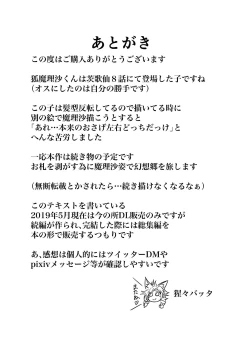 あとがき
この度はご購入ありがとうございます
狐魔理沙くんは茨歌仙８話にて登場した子ですね
（オスにしたのは自分の勝手です）
この子は髪型反転してるので描いてる時に
別の絵で魔理沙描こうとすると
「あれ…本来のおさげ左右どっちだっけ」と
へんな苦労しました
一応本作は続き物の予定です
お札を剥がす為に魔理沙姿で幻想郷を旅します
（無断転載とかされたら…続き描けなくなるなぁ）
このテキストを書いている
2019年5月現在は今の所DL販売のみですが
続編が作られ、完結した際には総集編を
本の形で販売するつもりです
あ、感想は個人的にはツイッターDMや
pixivメッセージ等が確認しやすいです
またねー
猩々バッタ